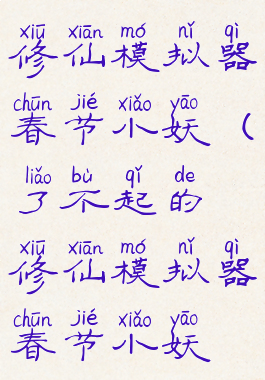 xiū xiān mó nǐ qì
修仙模拟器
chūn jié xiǎo yāo
春节小妖（
liǎo bù qǐ de
了不起的
xiū xiān mó nǐ qì
修仙模拟器
chūn jié xiǎo yāo
春节小妖